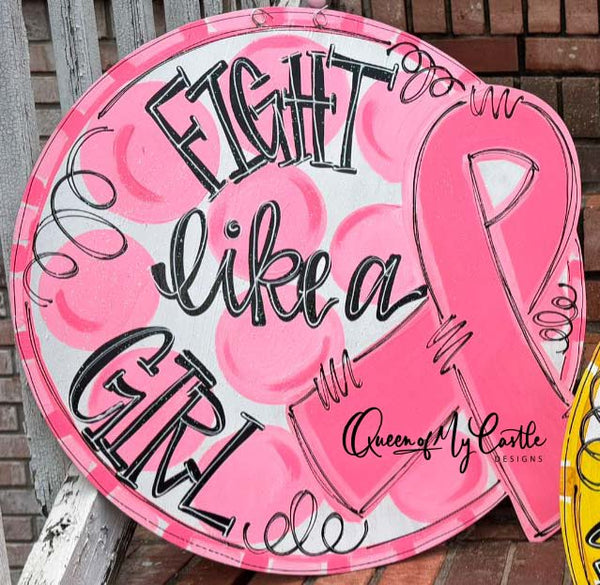 FIGHT
like a
GIRL
Queen of My Castle
DESIGNS